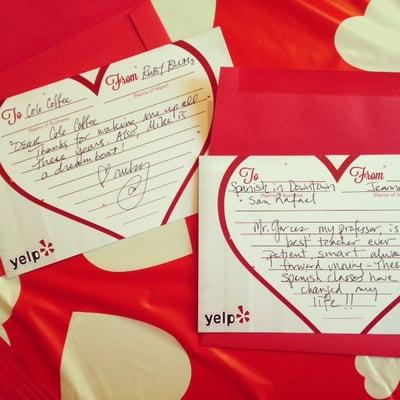 To Cole Coffee
(Name of Business)
From Ruby Blume
(Name of Yelper)
"Dear Cole Coffee
Thanks for waking me up all
these years. Also, Mike is
a dreamboat!
ruby
yelp
To
From
Spanish in Downtown
(Name of Business)
San Rafael
Jeanne
(Name of Yelper)
Mr. Garcez, my professor is
best teacher ever
patient, smart always
forward moving - These
Spanish classes have
changed my
life!!
yelp